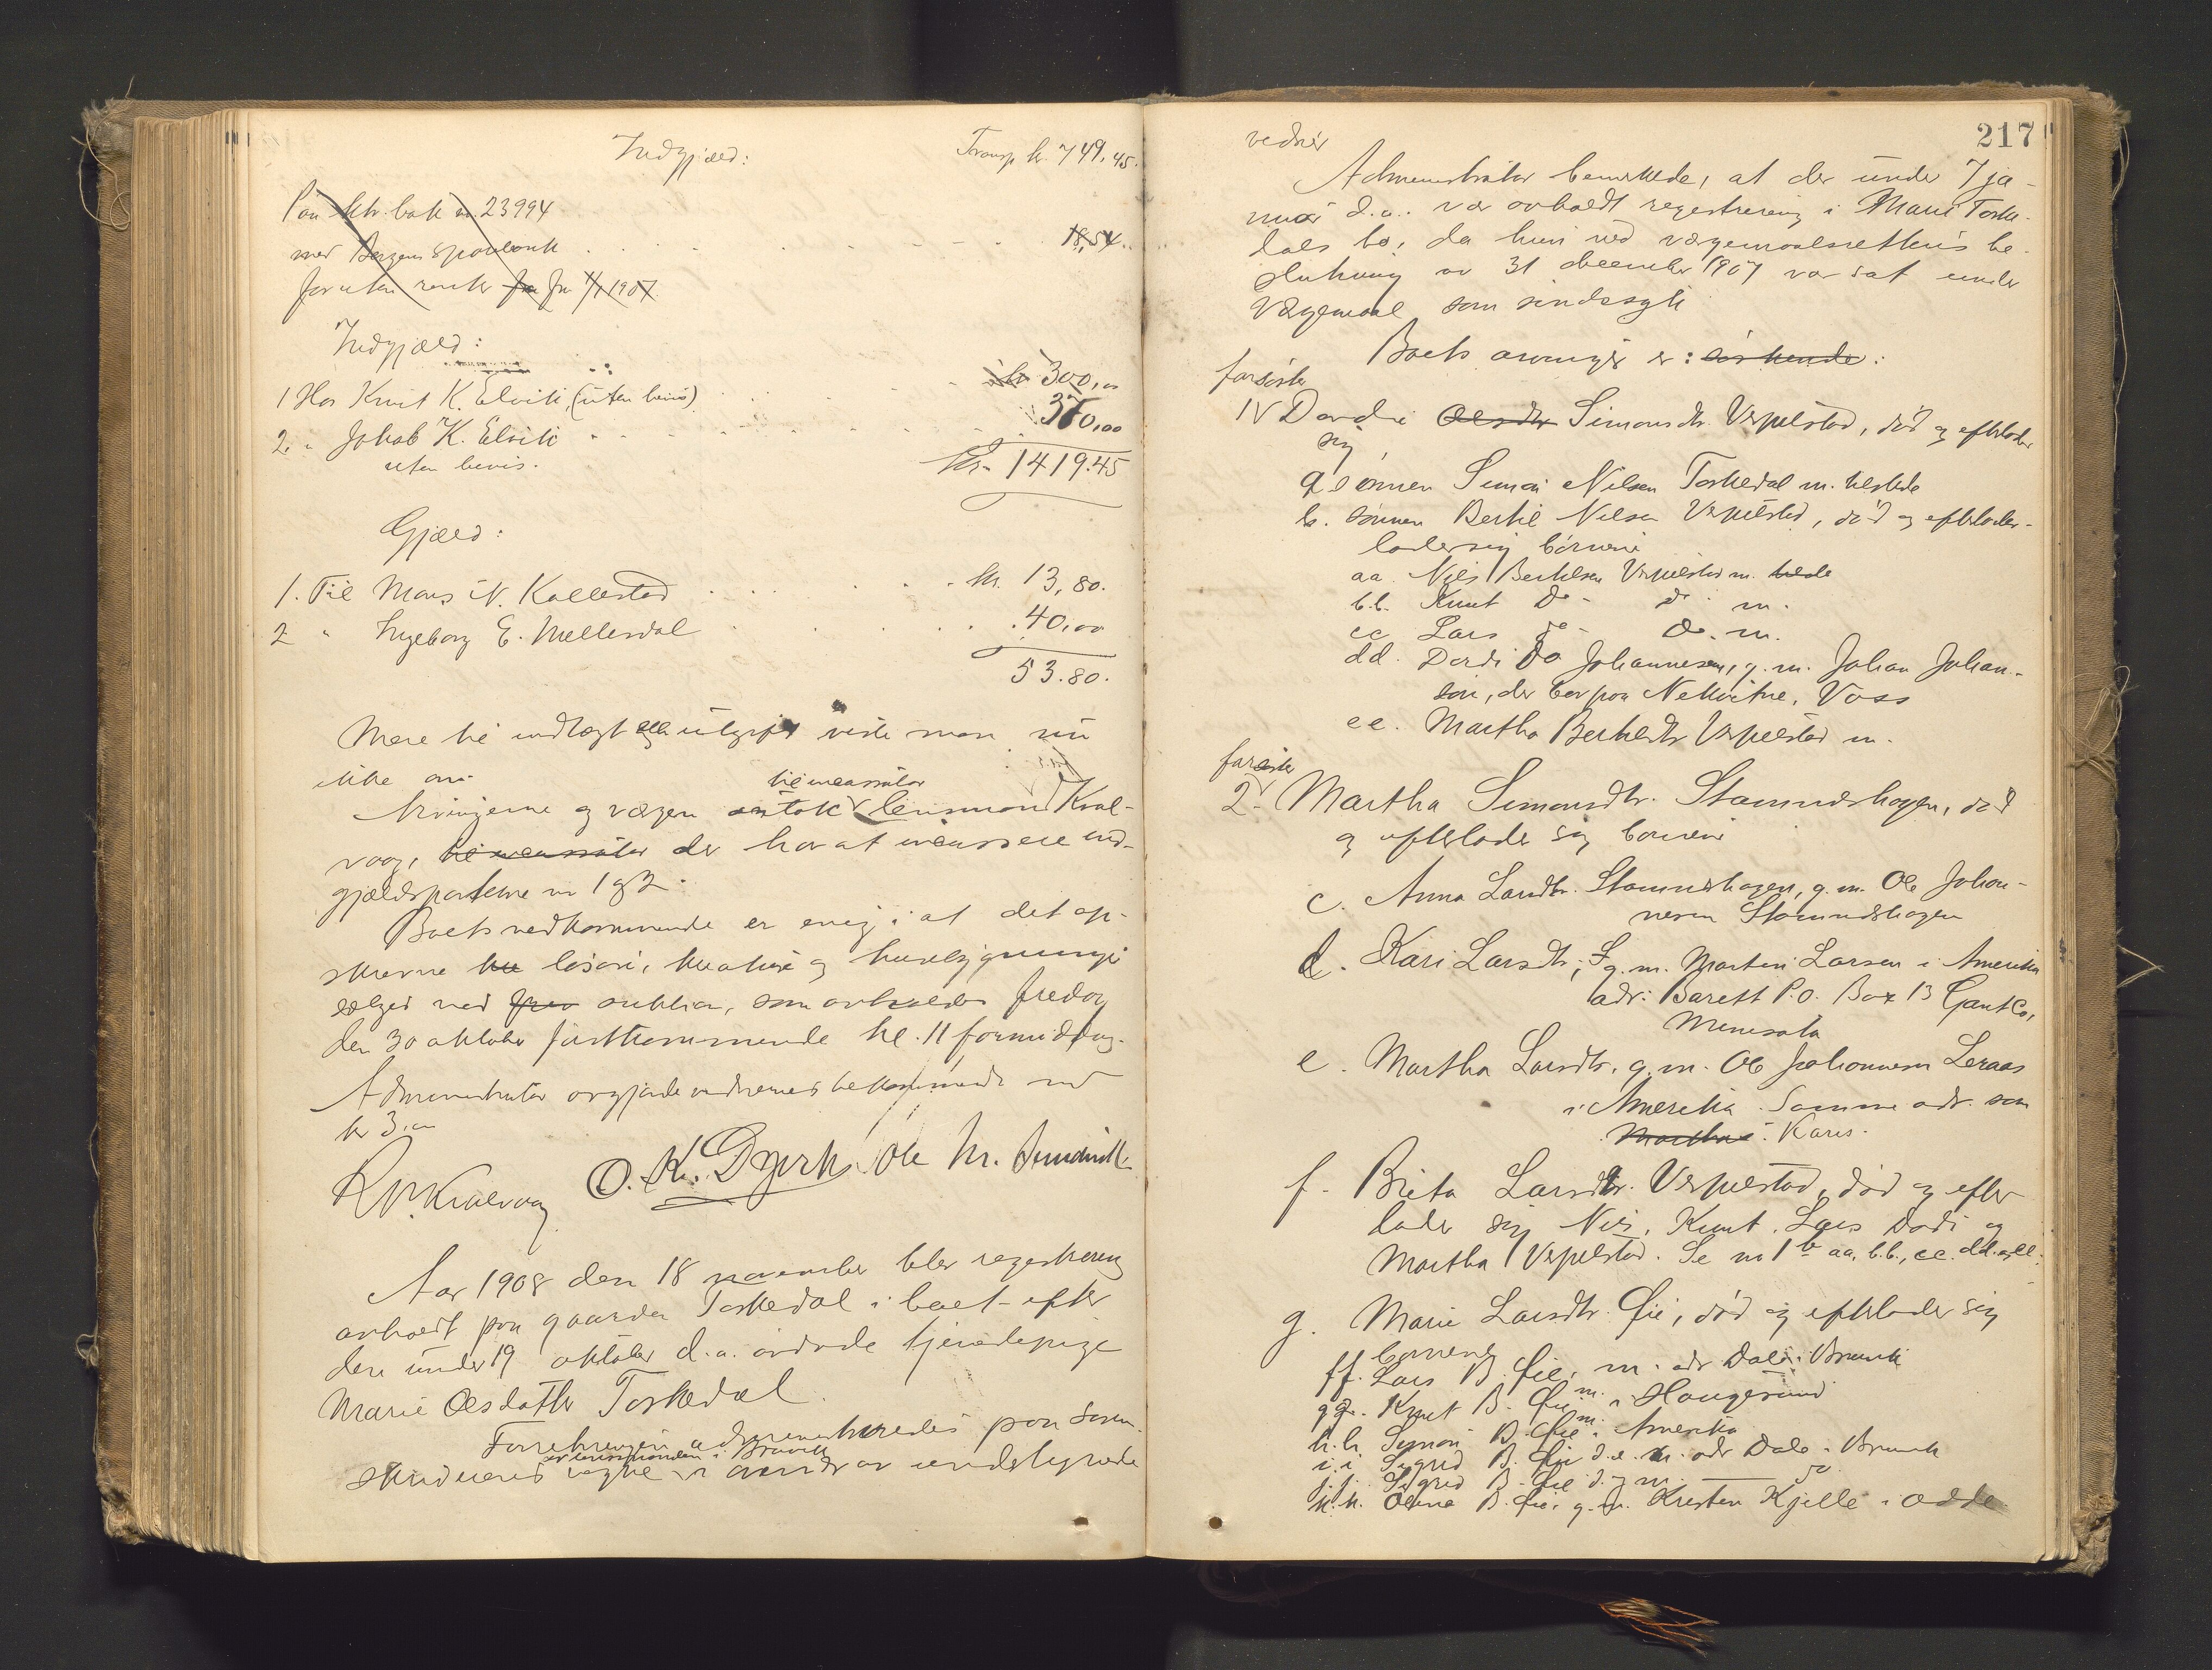 Indgjæld: Transp kr. 749,45.
Paa ktr. bok n. 23994
med Bergens sparebank . . . 18,54
foruten renter fra 1/1 1907.
Indgjæld:
1 Hos Knut K. Elvik (uten bevis) . . . kr 300,00
2. " Jakob K. Elvik . . . 370,00
uten bevis.
kr. 1419.45
Gjæld:
1. Til Mons N. Kallestad . . . kr. 13,80.
2 " Ingeborg E. Mellesdal . . . 40,00
53.80.
Mere til indtægt eller utgift viste man nu
ikke om.
til incassator
Arvingerne og værgen antok lensmand Kval-
vaag, til incassator der har at incassere ind-
gjældsposterne nr 1 og 2.
Boets vedkommende er enig i at det op-
skrevne løsøre, kreature og husebygninge
sælges ved auktion, som avholdes fredag
den 30 oktober førstkommende kl. 11 formiddag.
Administrator avgjorde vidnernes bekommende med
kr 3,00
R. Kvalvaag O. K. Dyrk Ole Kr.
Aar 1908 den 18 november blev registrering
avholdt paa gaarden Toskedal i boet efter
den under 19 oktober d.a. avdøde tjenestepige
Marie Olsdatter Toskedal.
Forretningen administreredes paa soren-
av lensmanden i Bruvik
skriverens vegne i overvær av undertegnede
217
vedner
Administrator bemerkede, at der under 7 ja-
nuar d.a. var avholdt registrering i Marie Toske-
dals bo, da hun ved værgemaalsrettens be-
slutning av 31 december 1907 var sat under
værgemaal som sindssyk
Boets arvinger er: søskende:
farsøster
1 Dordi Olsdtr Simonsdtr. Vspelstad, død og efterlader
sig
a sønnen Simon Nilsen Toskedal m. tilstede
b. sønnen Bertil Nilsen Vspelstad, død og efterlader-
lader sig børnene
aa. Nils Bertelsen Vspelstad m. tilstede
b.b. Knut Do - do - m.
cc Lars do - Do. m.
dd. Dordi Do Johannesen, g. m. Johan Johan-
sen, der bor paa Nekvitne, Voss
ee. Martha Bertelsdtr Vspelstad m.
farsøster
2. Martha Simonsdtr. Stamneshagen, død
og efterlader sig børnene
c. Anna Larsdtr. Stamneshagen, g. m. Ole Johan-
nesen Stamneshagen
d. Kari Larsdtr, g. m. Morten Larsen i Amerika
adr: Barett P.O. Box 13 Gant Co,
Minesota
e. Martha Larsdtr. g. m. Ole Johannesen Leraas
i Amerika. Samme adr. som
Marthas. Karis.
f. Brita Larsdtr. Vspelstad, død og efter-
lader sig Nils, Knut, Lars Dordi og
Martha Vspelstad. Se nr 1 b aa, b.b., cc. dd. og ee.
g. Marie Larsdtr. Øie, død og efterlader sig
børnene
ff. Lars B. Øie, m. adr Dale i Bruvik
gg. Knut B. Øie m. i Haugesund
h.h. Symon B. Øie m. i Amerika
i.i. Sigrid B. Øie d.e. m. adr Dale i Bruvik
j.j. Sigrid B. Øie d.y. m. do
k.k. Oline B. Øie, g. m. Kristen Kjelle i Odde